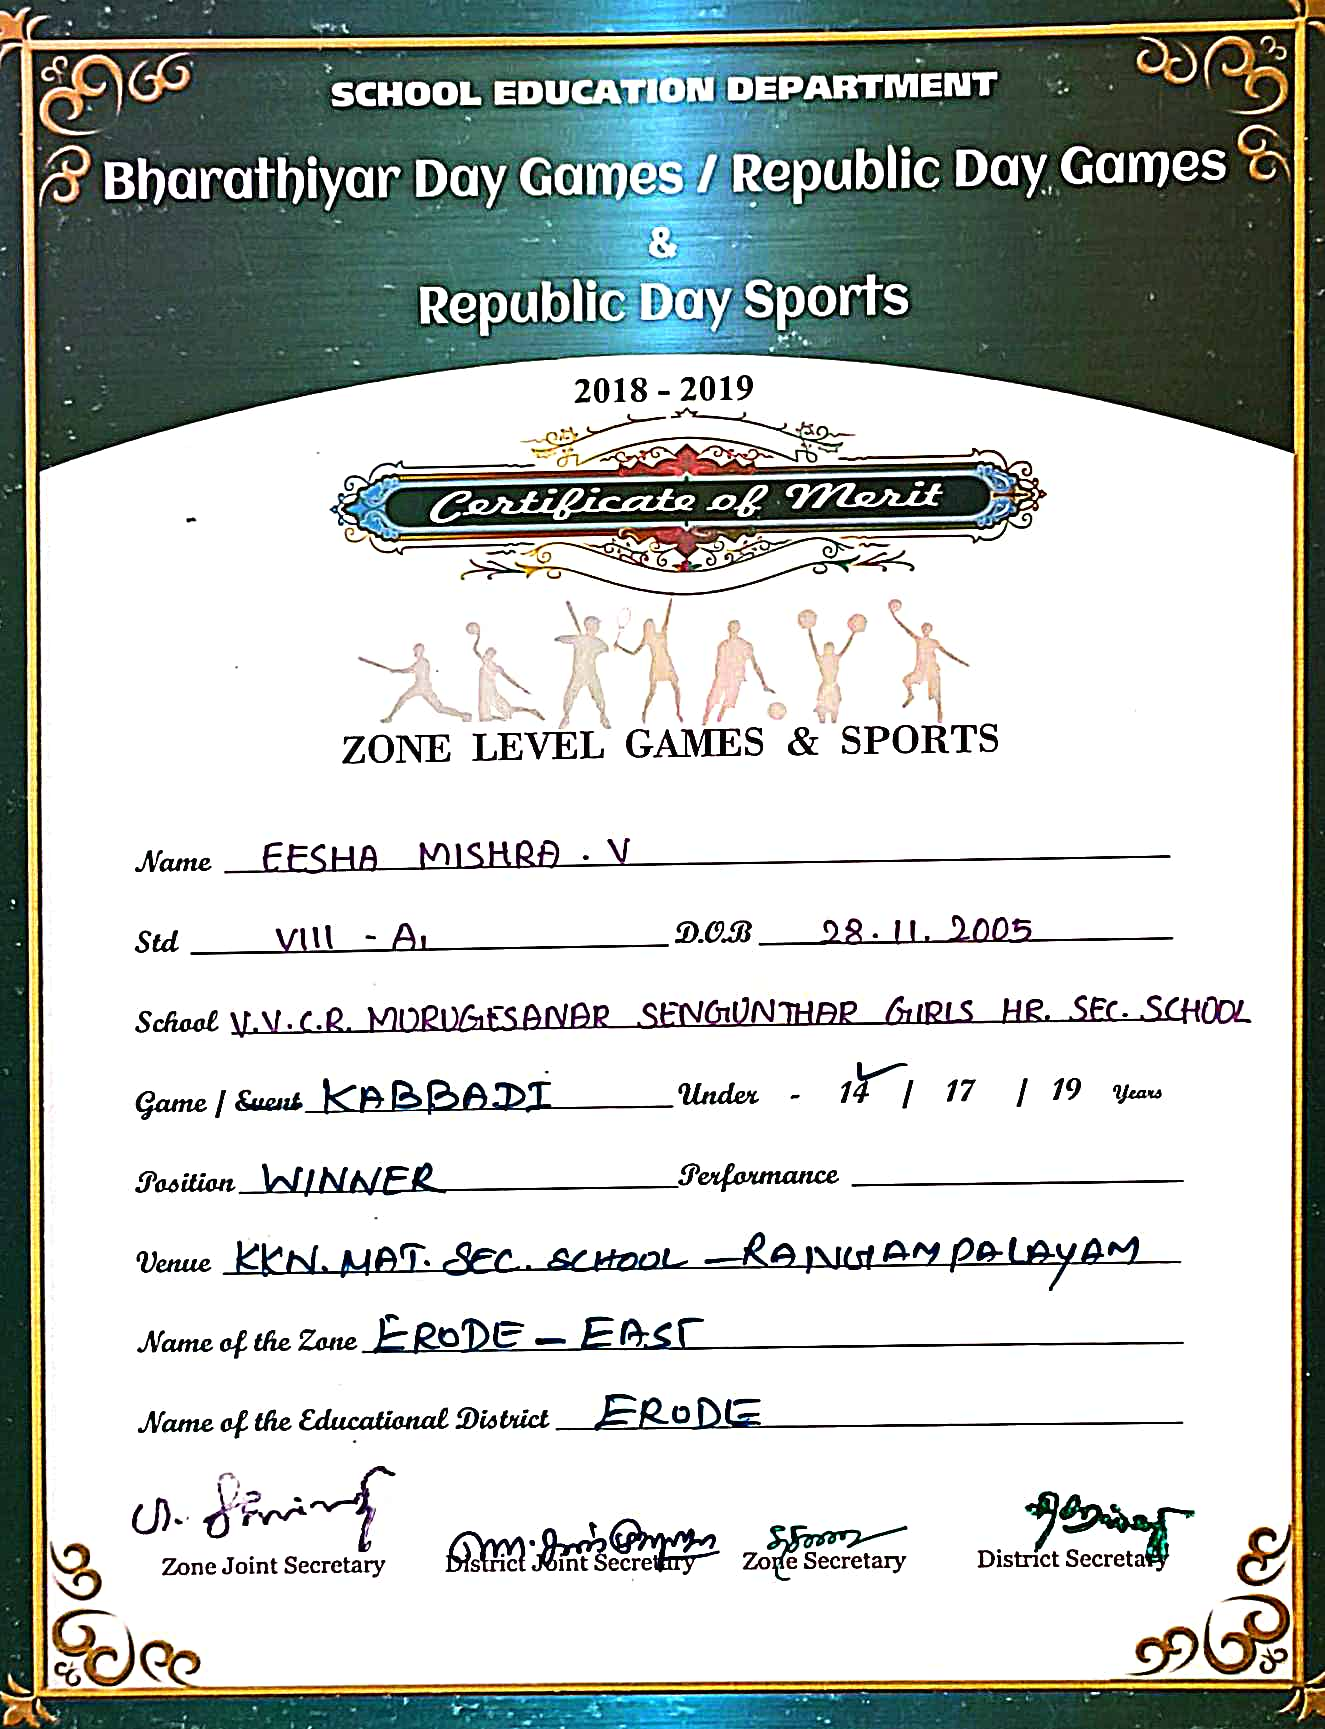 SCHOOL EDUCATION DEPARTMENT
Bharathiyar Day Games / Republic Day Games
&
Republic Day Sports
2018 - 2019
Certificate of Merit
ZONE LEVEL GAMES & SPORTS
Name EESHA MISHRA . V
Std VIII - A1 D.O.B 28.11.2005
School V.V.C.R. MURUGESANAR SENGUNTHAR GIRLS HR. SEC. SCHOOL
Game / Event KABBADI Under - 14 / 17 / 19 Years
Position WINNER Performance
Venue KKN. MAT. SEC. SCHOOL – RANGAMPALAYAM
Name of the Zone ERODE – EAST
Name of the Educational District ERODE
Zone Joint Secretary District Joint Secretary Zone Secretary District Secretary